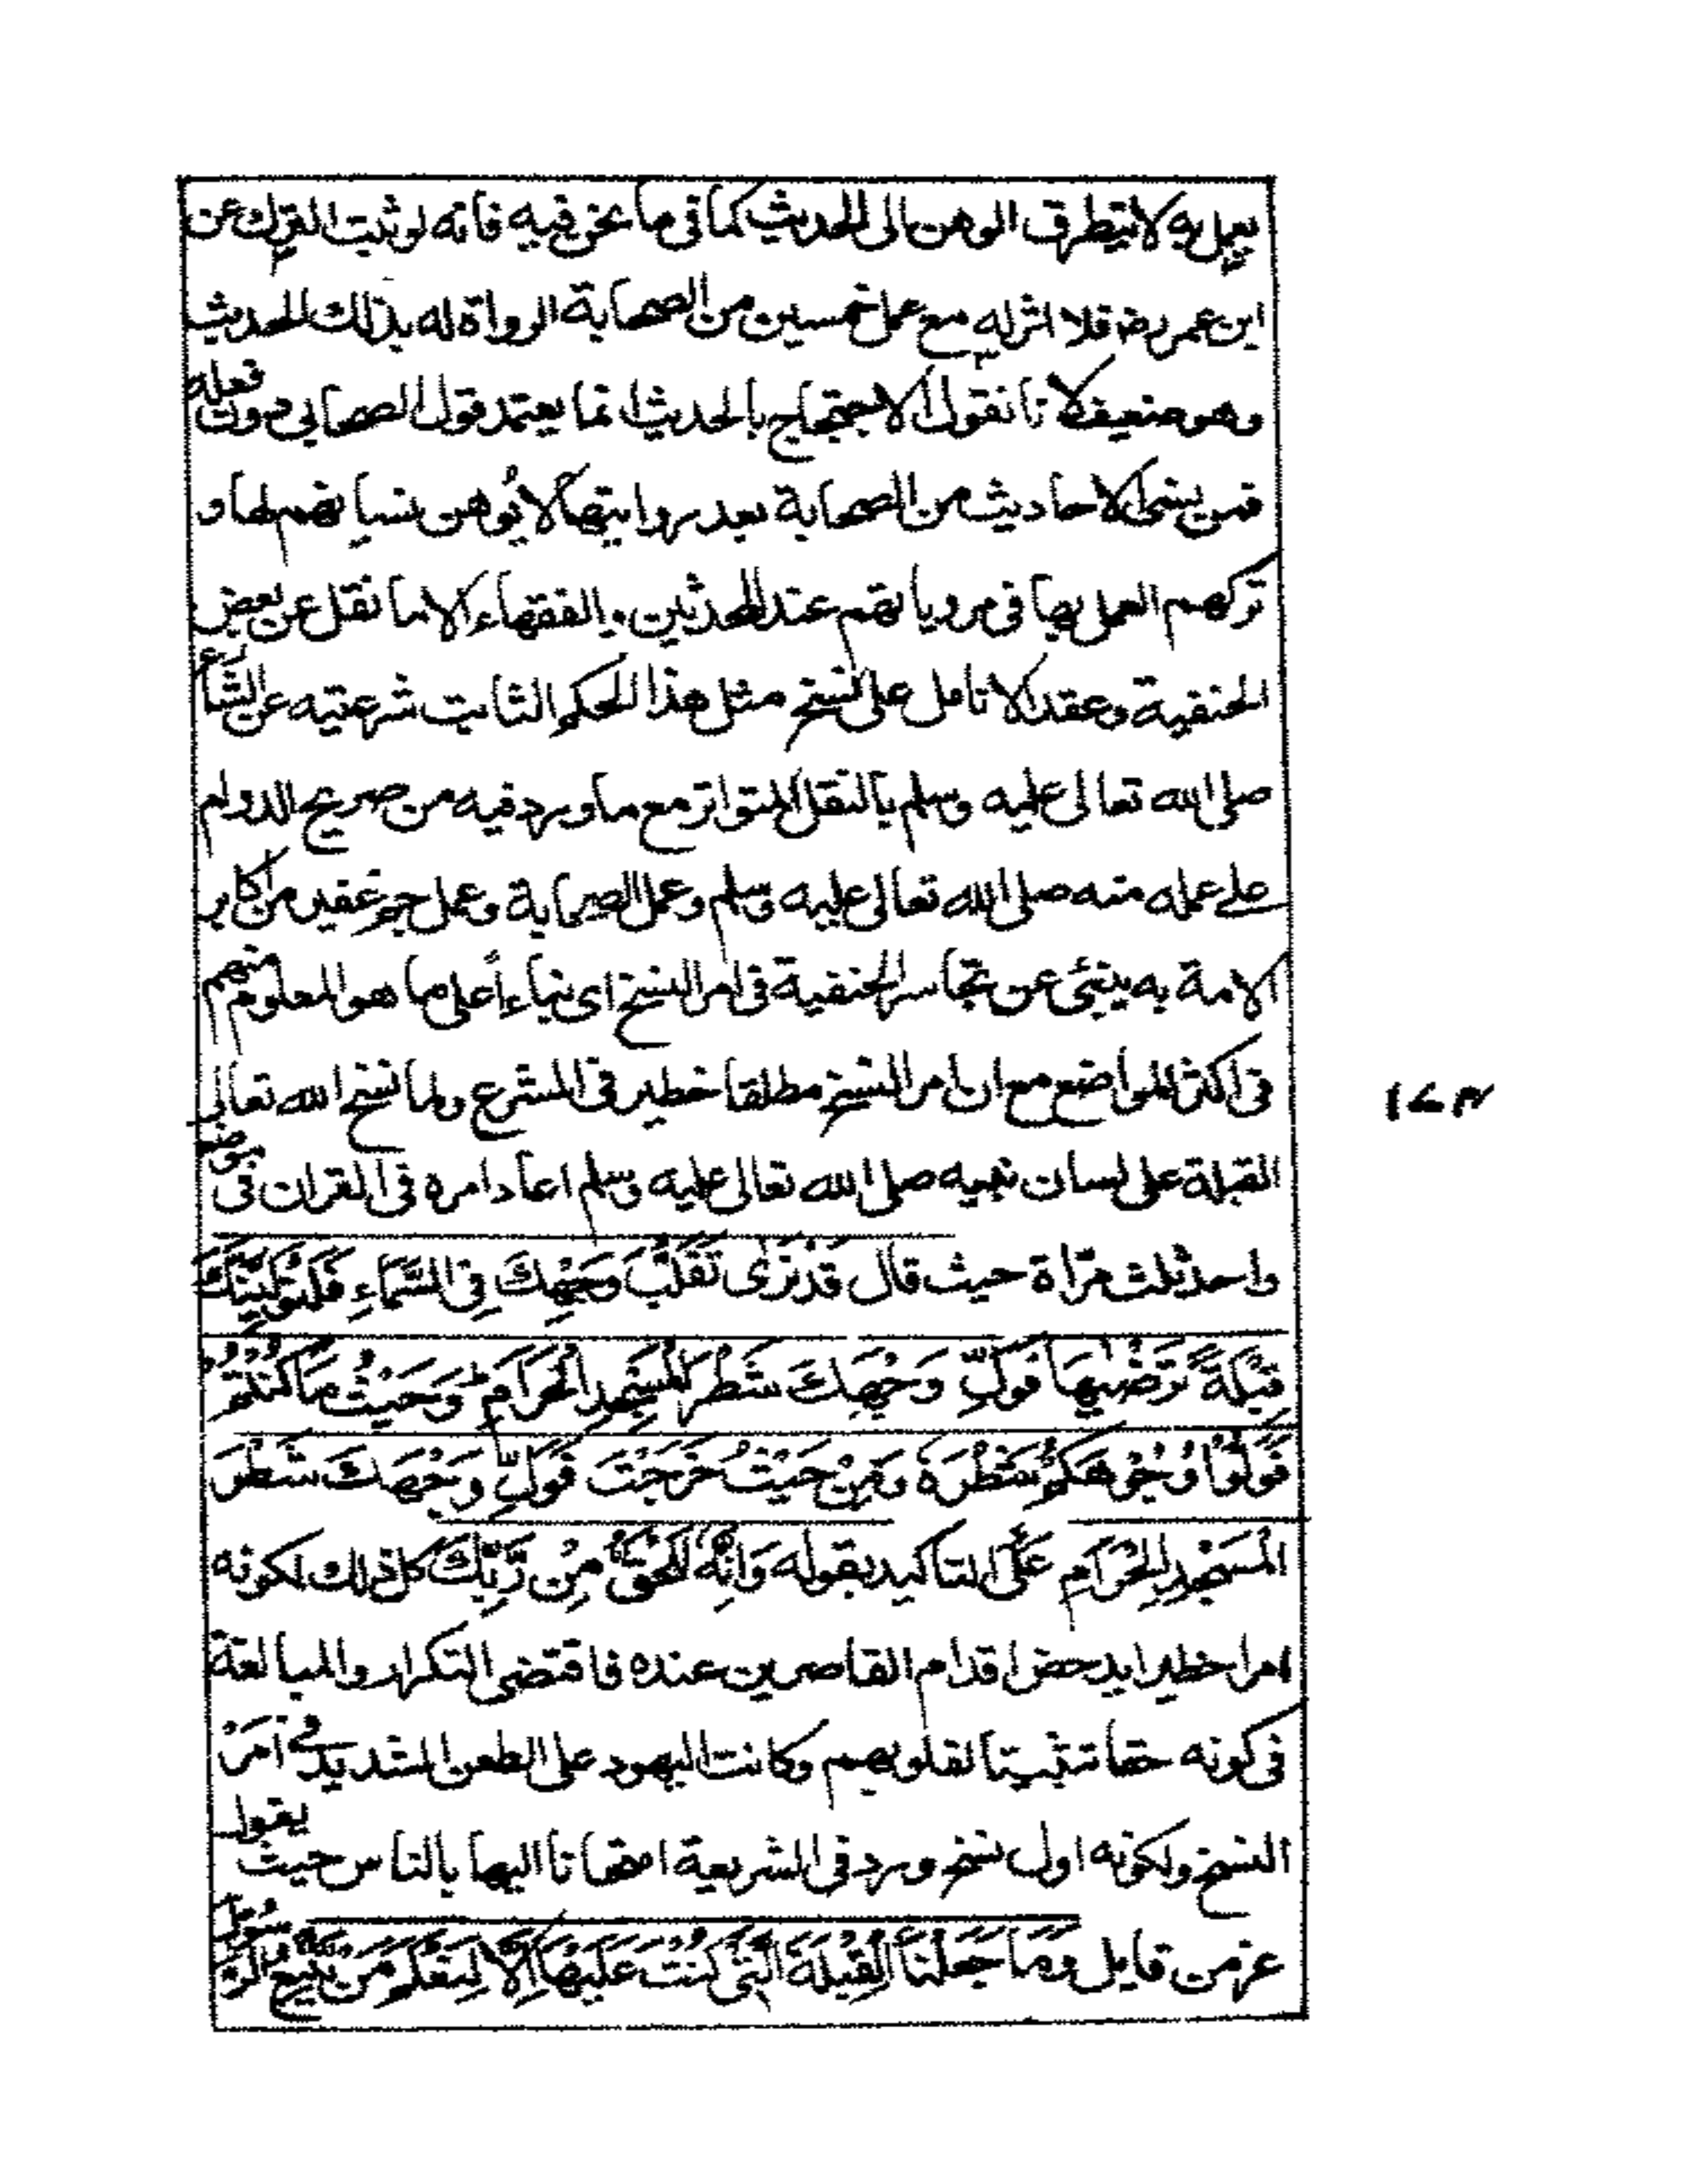 يعمل به لا يتطرق الوهن الى الحديث كما فى ما نحن فيه فانه لو ثبت الترك عن
ابن عمر رض فلا اثر له مع عمل خمسين من الصحابة الرواة له بذلك الحديث
وهو ضعيف لا نا نقول الاحتجاج بالحديث انما يعتمد قول الصحابي دون فعله
فمن ينسى الاحاديث من الصحابة بعد روايتها لا يُوهن نسيانهم لها و
تركهم العمل بها فى مروياتهم عند المحدثين والفقهاء الا ما نقل عن بعض
الحنفية وعقد الانامل على نسخ مثل هذا الحكم الثابت شرعيته عن الشارع
صلى الله تعالى عليه وسلم بالنقل المتواتر مع ما ورد فيه من صريح الدوام
على عمله منه صلى الله تعالى عليه وسلم وعمل الصحابة وعمل جم غفير من اكابر
الامة به ينبئ عن تجاسر الحنفية فى امر النسخ اى بناءاً على ما هو المعلوم منهم
فى اكثر المواضع مع ان امر النسخ مطلقا خطير فى الشرع ولما نسخ الله تعالى
القبلة على لسان نبيه صلى الله تعالى عليه وسلم اعاد امره فى القران فى موضع
واحد ثلث مرّاة حيث قال قَدْ نَرٰى تَقَلُّبَ وَجْهِكَ فِى السَّمَاءِ فَلَنُوَلِّيَنَّكَ
قِبْلَةً تَرْضٰيهَا فَوَلِّ وَجْهَكَ شَطْرَ الْمَسْجِدِ الْحَرَامِ وَحَيْثُ مَا كُنْتُمْ
فَوَلُّوْا وُجُوْهَكُمْ شَطْرَهٗ وَمِنْ حَيْثُ خَرَجْتَ فَوَلِّ وَجْهَكَ شَطْرَ
الْمَسْجِدِ الْحَرَامِ عَلَى التاكيد بقوله وَاِنَّهٗ لَلْحَقُّ مِنْ رَّبِّكَ كل ذلك لكونه
امرا خطيرا يدحض اقدام القاصرين عنده فاقتضى التكرار والمبالغة
فى كونه حقا تثبيتا لقلوبهم وكانت اليهود على الطعن الشديد فى اَمْرَ
النسخ ولكونه اول نسخ ورد فى الشريعة امتحانا اليها بالناس حيث يقول
عز من قايل وَمَا جَعَلْنَا الْقِبْلَةَ الَّتِىْ كُنْتَ عَلَيْهَا اِلَّا لِنَعْلَمَ مَنْ يَّتَّبِعُ الرَّسُوْلَ
١٤٣